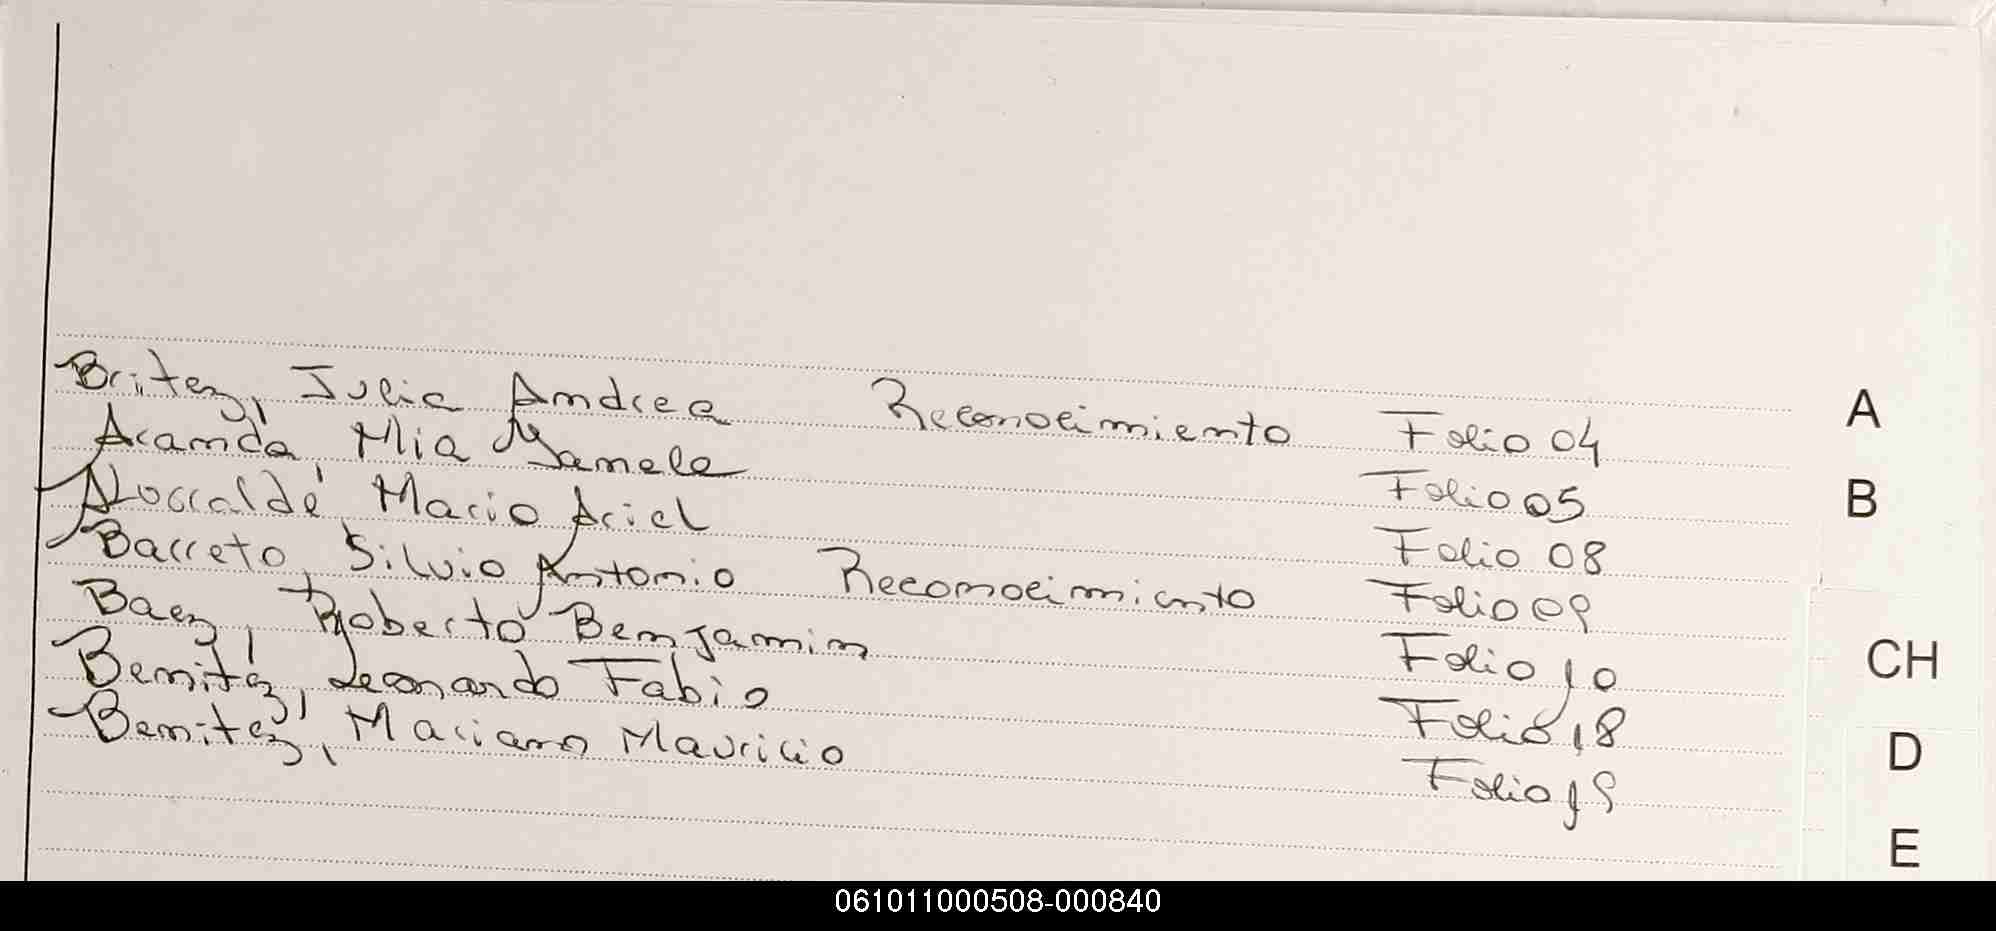 Britez, Julia Andrea Reconocimiento Folio 04 A
Aranda, Mia Yamele Folio 05 B
Mario Ariel Folio 08
Barreto, Silvio Antonio Reconocimiento Folio 09
Baez, Roberto Benjamin Folio 10 CH
Benitez, Leonardo Fabio Folio 18
Benitez, Mariano Mauricio Folio 19 D
E
061011000508-000840